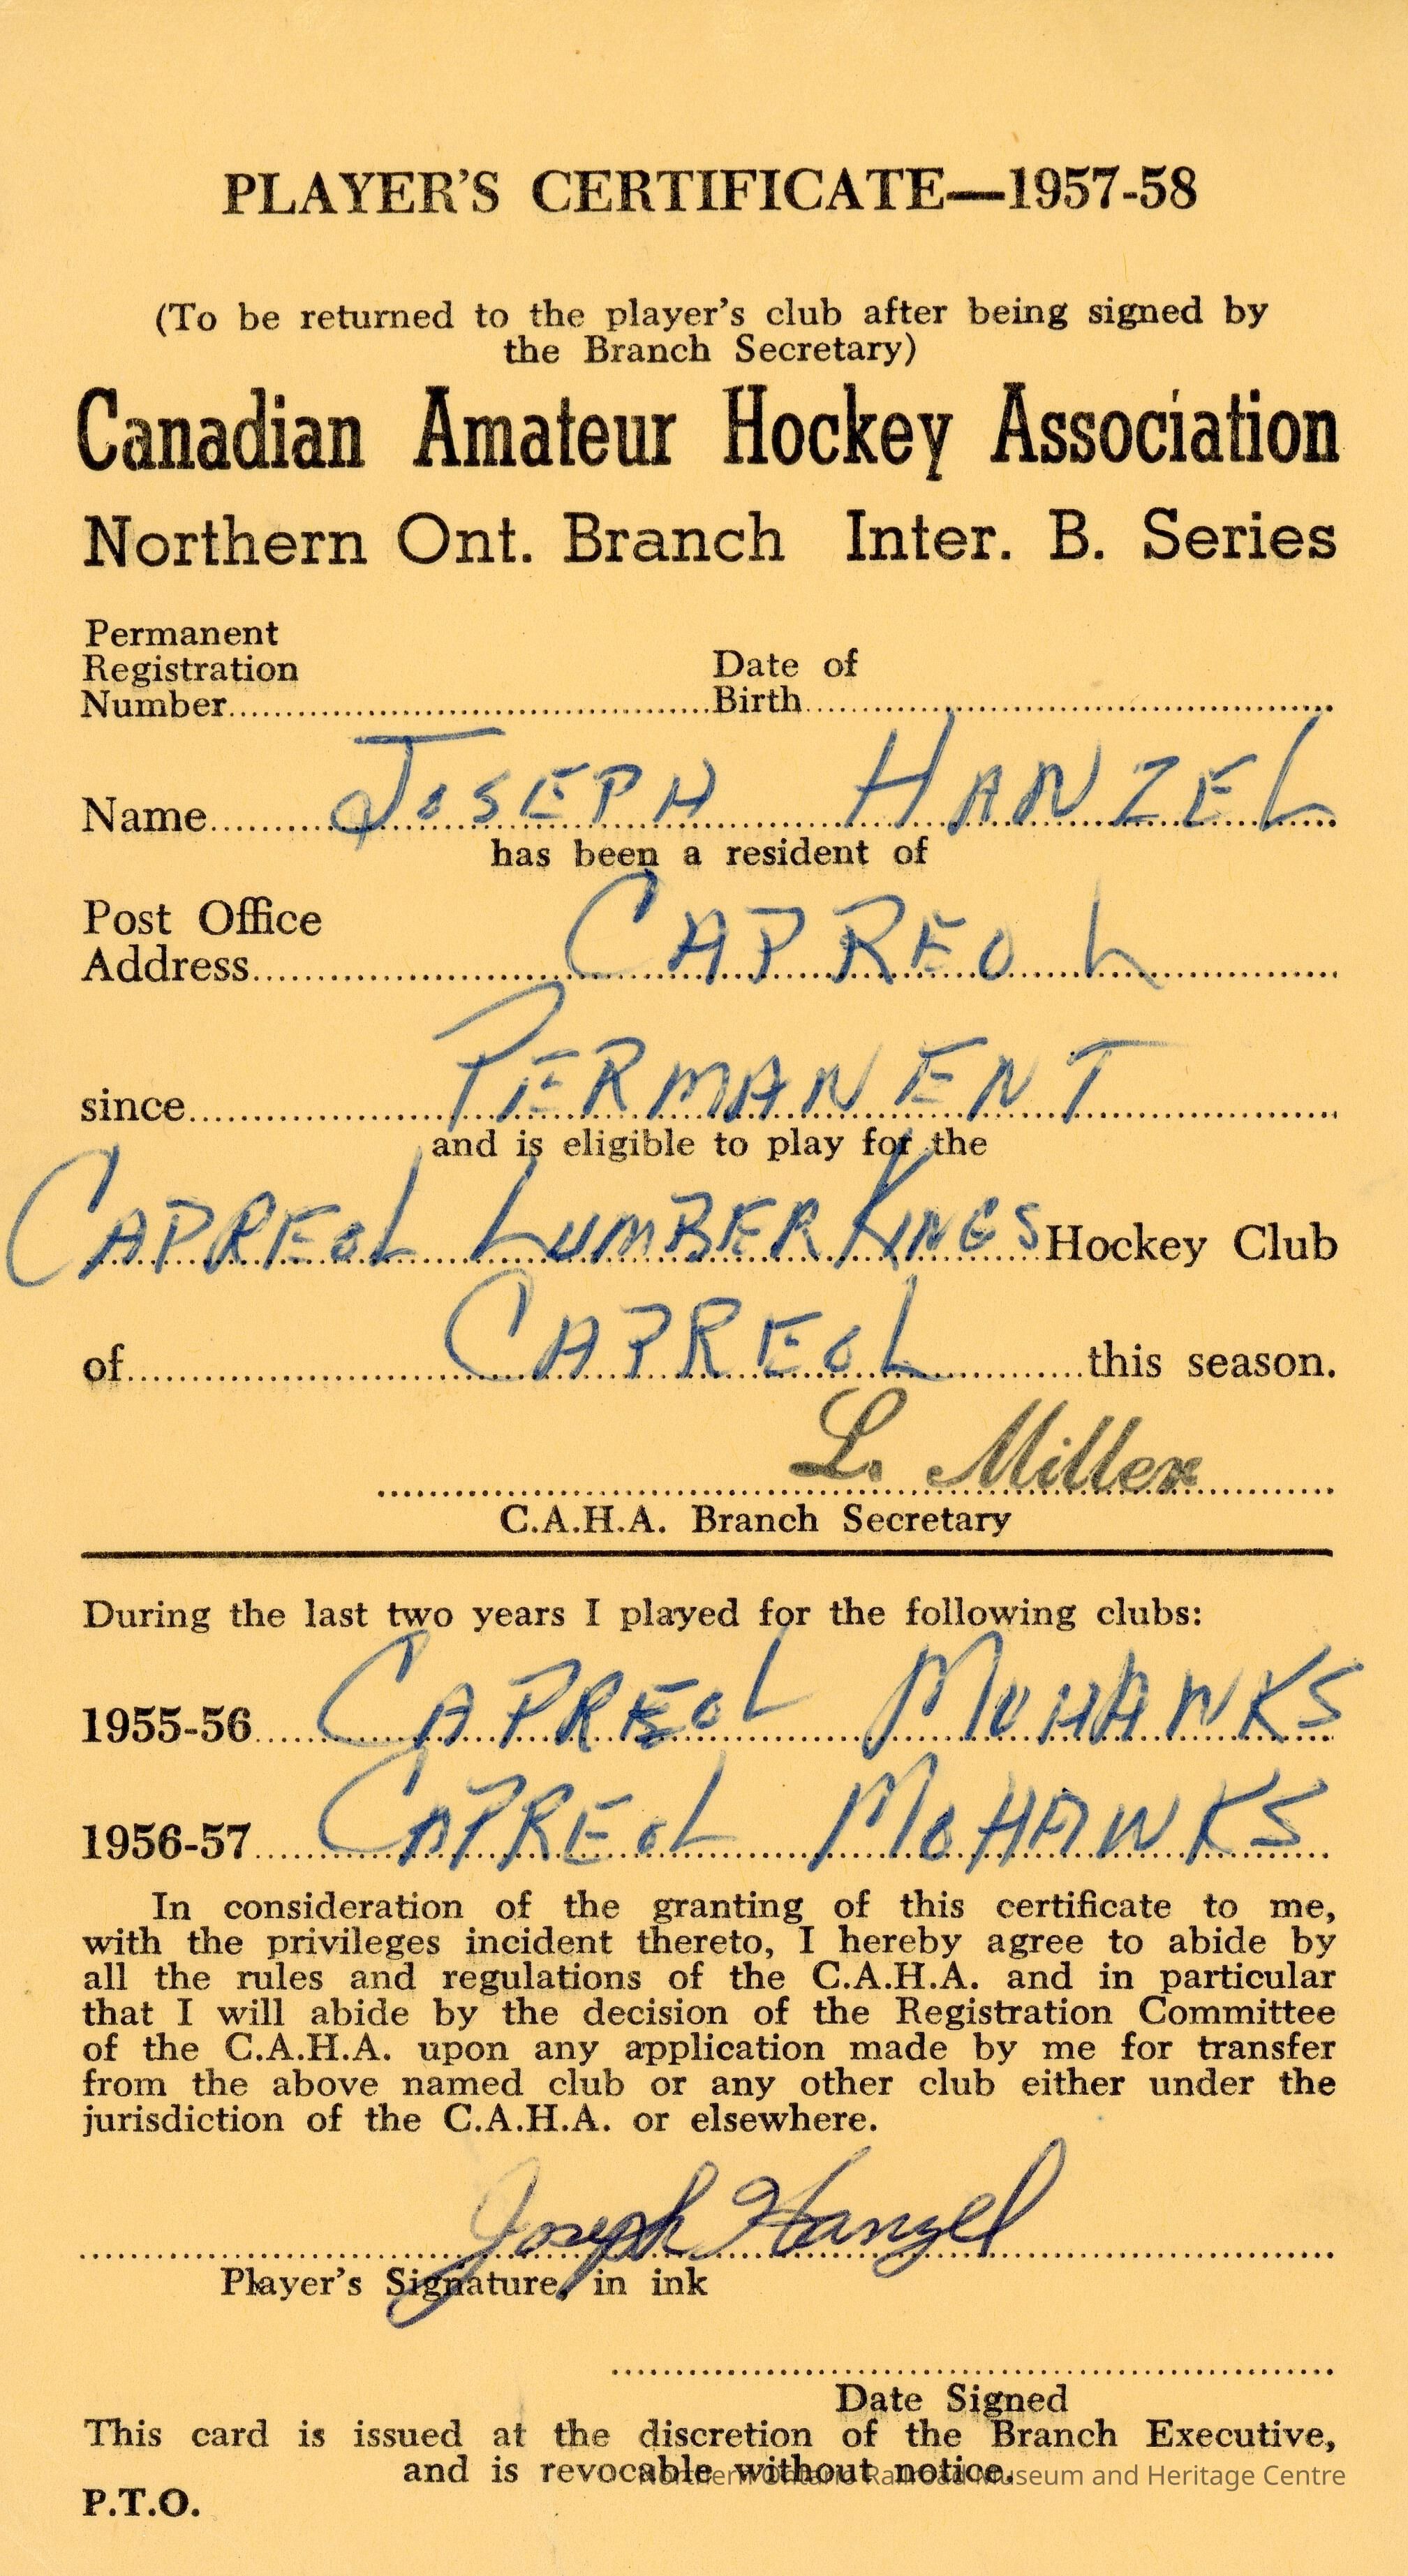 PLAYER'S CERTIFICATE—1957-58
(To be returned to the player's club after being signed by
the Branch Secretary)
Canadian Amateur Hockey Association
Northern Ont. Branch Inter. B. Series
Permanent
Registration
Number
Date of
Birth
Name JOSEPH HANZEL
has been a resident of
Post Office
Address CAPREOL
since PERMANENT
and is eligible to play for the
CAPREOL LUMBER KINGS Hockey Club
of CAPREOL this season.
L. Miller
C.A.H.A. Branch Secretary
During the last two years I played for the following clubs:
1955-56 CAPREOL MOHAWKS
1956-57 CAPREOL MOHAWKS
In consideration of the granting of this certificate to me,
with the privileges incident thereto, I hereby agree to abide by
all the rules and regulations of the C.A.H.A. and in particular
that I will abide by the decision of the Registration Committee
of the C.A.H.A. upon any application made by me for transfer
from the above named club or any other club either under the
jurisdiction of the C.A.H.A. or elsewhere.
Joseph Hanzel
Player's Signature, in ink
Date Signed
This card is issued at the discretion of the Branch Executive,
and is revocable without notice.
Northern Ontario Railroad Museum and Heritage Centre
P.T.O.